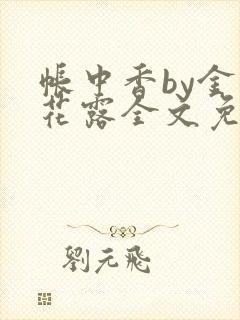 帳中香by金
花露全文免
劉元飛